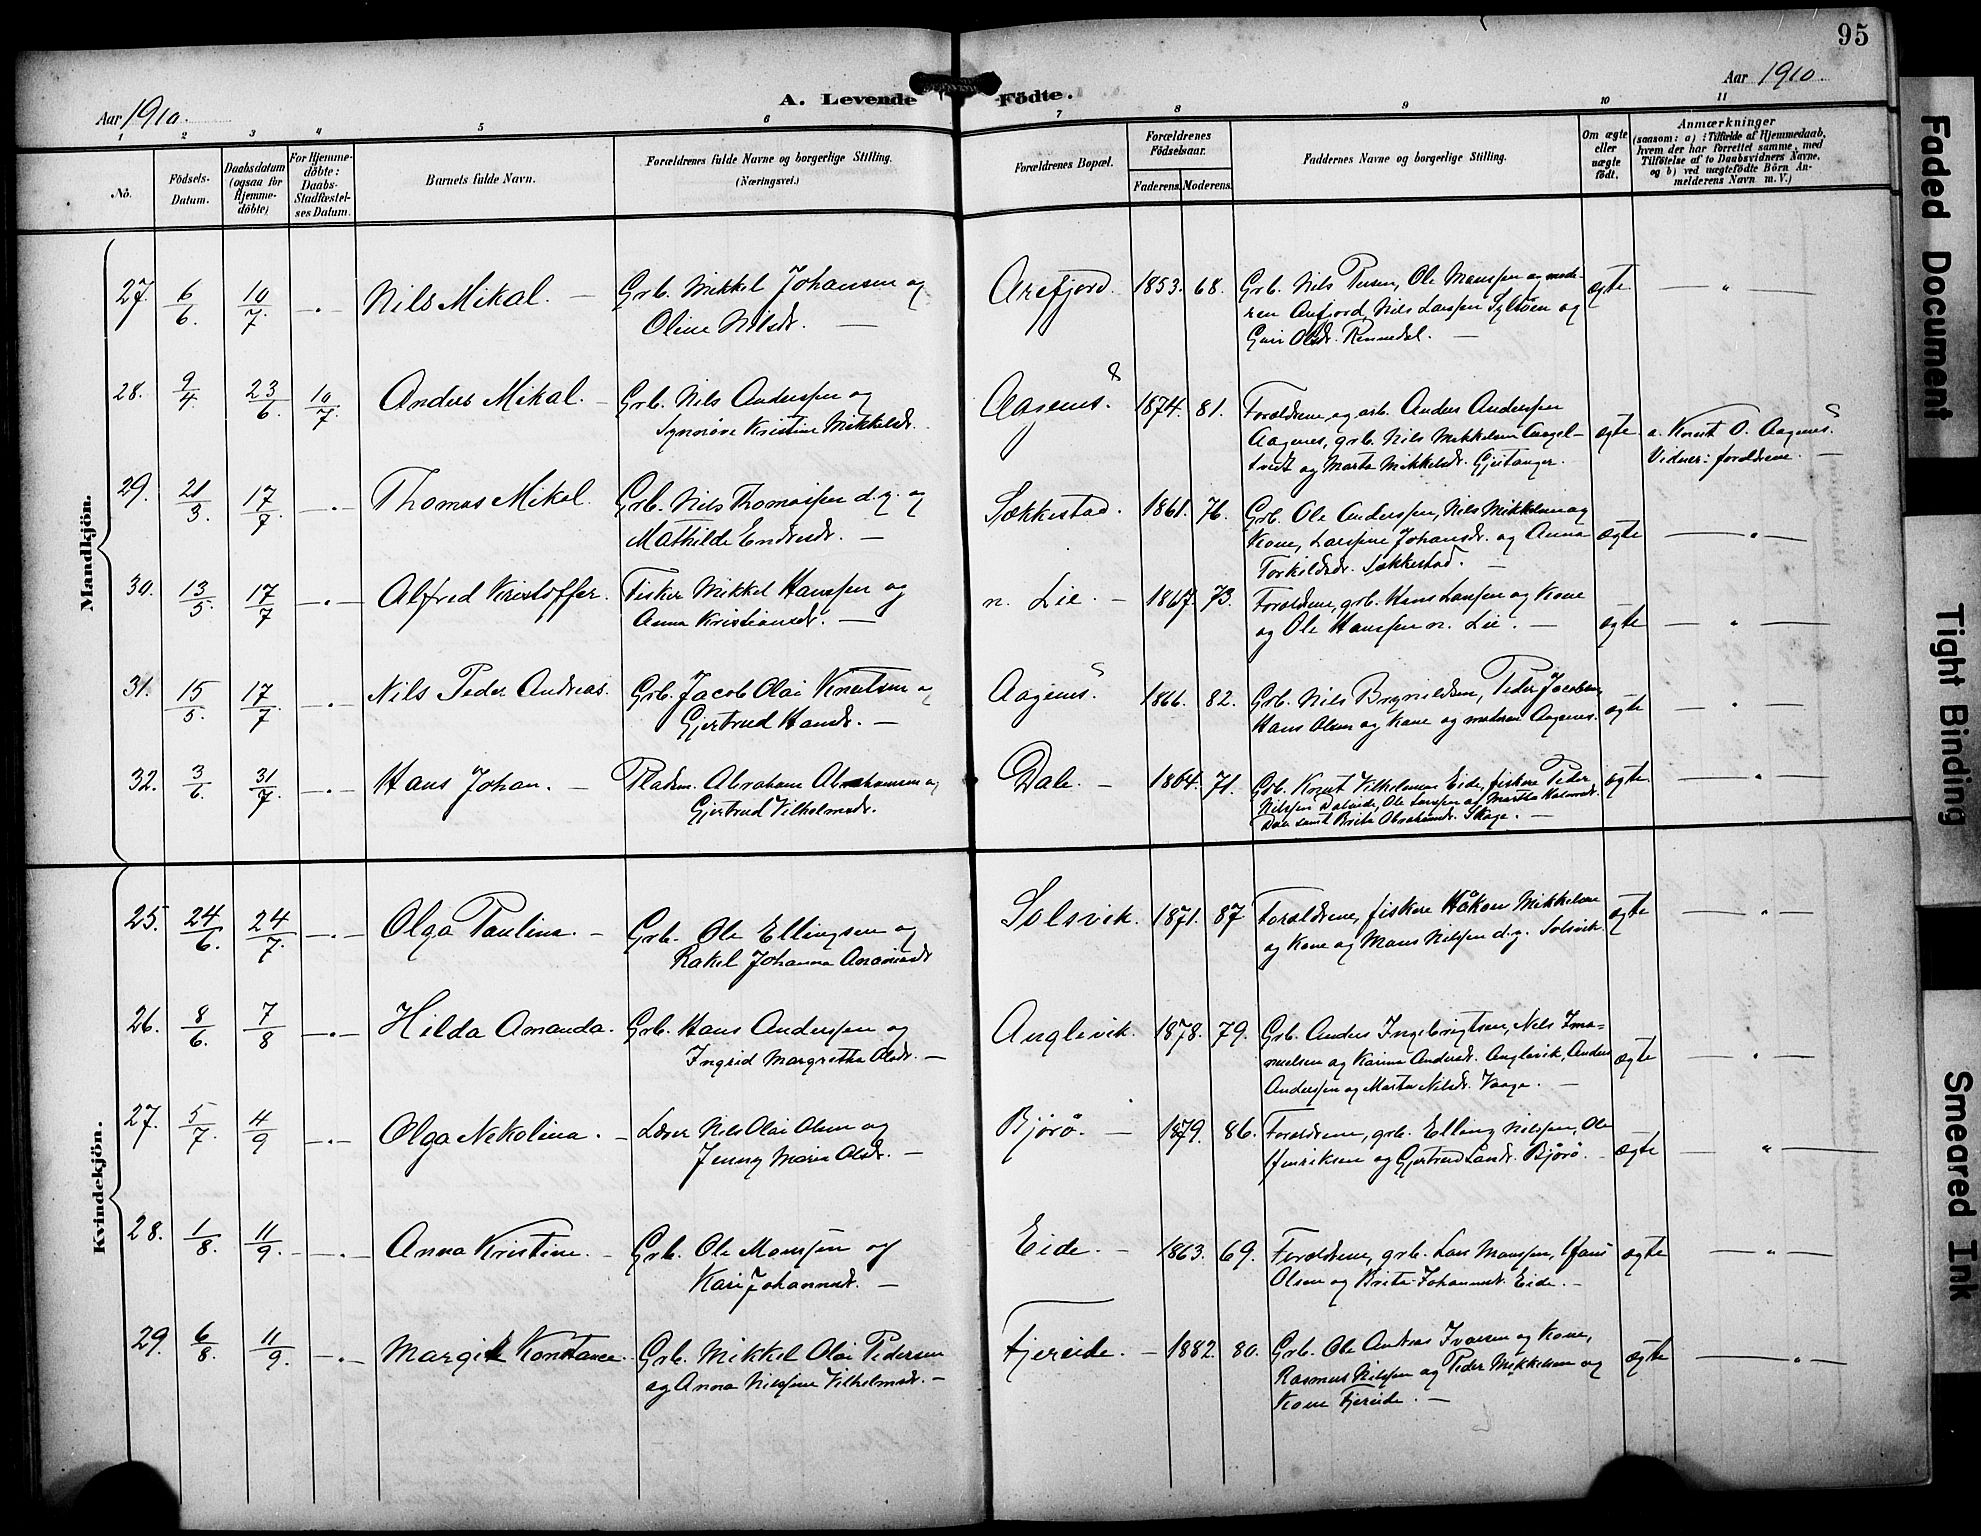 95
Aar 1910.
A. Levende Födte.
Aar 1910.
1 2 3 4 5 6 7 8 9 10 11
No.
Födsels-Datum.
Daabsdatum (ogsaa for Hjemme-döbte)
For Hjemme-döbte: Daabs-Stadfæstel-ses Datum.
Barnets fulde Navn.
Forældrenes fulde Navne og borgerlige Stilling.
(Næringsvei.)
Forældrenes Bopæl.
Forældrenes Födselsaar.
Faderens. Moderens.
Faddernes Navne og borgerlige Stilling.
Om ægte eller uægte födt.
Anmærkninger
(saasom: a) i Tilfælde af Hjemmedaab,
hvem der har forrettet samme, med
Tilföielse af to Daabsvidners Navne,
og b) ved uægtefödte Börn An-
melderens Navn m. V.)
Mandkjön.
27. 6/6. 10/7. Nils Mikal. Grb. Mikkel Johansen og
Oline Nilsdr.
Arefjord. 1853. 68. Grb. Nils Persen, Ole Monssen og mode-
ren Arefjord, Nils Larssen Syltöen og
Guri Olsdr. Rennedal.
ægte
28. 9/4. 23/6. 10/7. Anders Mikal. Grb. Nils Anderssen og
Synnöve Kristine Mikkelsdr.
Aagenes. 1874. 81. Forældrene og arb. Anders Anderssen
Aagenes, grb. Nils Mikkelsen
og Marta Mikkelsdr. Geitanger.
ægte a. Knut O. Aagenes.
Vidner: forældrene.
29. 21/3. 17/7. Thomas Mikal. Grb. Nils Thomassen d.y. og
Mathilde Endresdr.
Sekkestad. 1861. 76. Grb. Ole Anderssen, Nils Mikkelsen og
Kone, Larssine Johansdr. og Anna
Torkildsdr. Sekkestad.
ægte
30. 13/5. 17/7 Alfred Kristoffer. Fisker Mikkel Hanssen og
Anna Kristiansdr.
n. Lie. 1867. 73. Forældrene, grb. Hans Larssen og Kone
og Ole Hanssen n. Lie.
ægte
31. 15/5. 17/7 Nils Peder Andreas. Grb. Jacob Olai Knutsen og
Gjertrud Hansdr.
Aagenes. 1866. 82. Grb. Nils Brynildsen, Peder Jacobsen,
Hans Olsen og Kone og moderen Aagenes.
ægte
32. 3/6. 31/7. Hans Johan. Pladsm. Abraham Abrahamsen og
Gjertrud Vilhelmsdr.
Dale. 1864. 71. Grb. Knut Vilhelmsen Eide, fiskere Peder
Nilssen Dalseide, Ole Larssen og Martha
samt Brita Abrahamsdr. Skage.
ægte
Kvindekjön.
25. 24/6. 24/7. Olga Paulina. Grb. Ole Ellingsen og
Rakel Johanna Ananiasdr.
Solsvik. 1871. 87 Forældrene, fisker Håkon Mikkelsen
og Kone og Mons Nilssen d.y. Solsvik.
ægte
26. 8/6. 7/8 Hilda Amanda. Grb. Hans Anderssen og
Ingrid Margretha Olsdr.
Anglevik. 1878. 79. Grb. Anders Ingebrigtsen, Nils Ima-
nuelsen og Karina Andersdr. Anglevik, Anders
Anderssen og Marta Nilsdr. Vaage.
ægte
27. 5/7. 4/9 Olga Nekolina. Lærer Nils Olai Olsen og
Jenny Marie Olsdr.
Björö. 1879. 86. Forældrene, grb. Elling Nilssen, Ole
Henriksen og Gjertrud Larsdr. Björö.
ægte
28. 1/8. 11/9. Anna Kristine. Grb. Ole Monssen og
Kari Johannesdr.
Eide. 1863. 69. Forældrene, grb. Lars Monssen, Hans
Olsen og Brita Johannesdr. Eide.
ægte
29. 6/8. 11/9. Margit Konstance. Grb. Mikkel Olai Pedersen
og Anna Nilssine Vilhelmsdr.
Fjereide. 1882. 80. Grb. Ole Andreas Ivarsen og Kone,
Rasmus Nilssen og Peder Mikkelsen og
Kone Fjereide.
ægte
Faded Document
Tight Binding
Smeared Ink